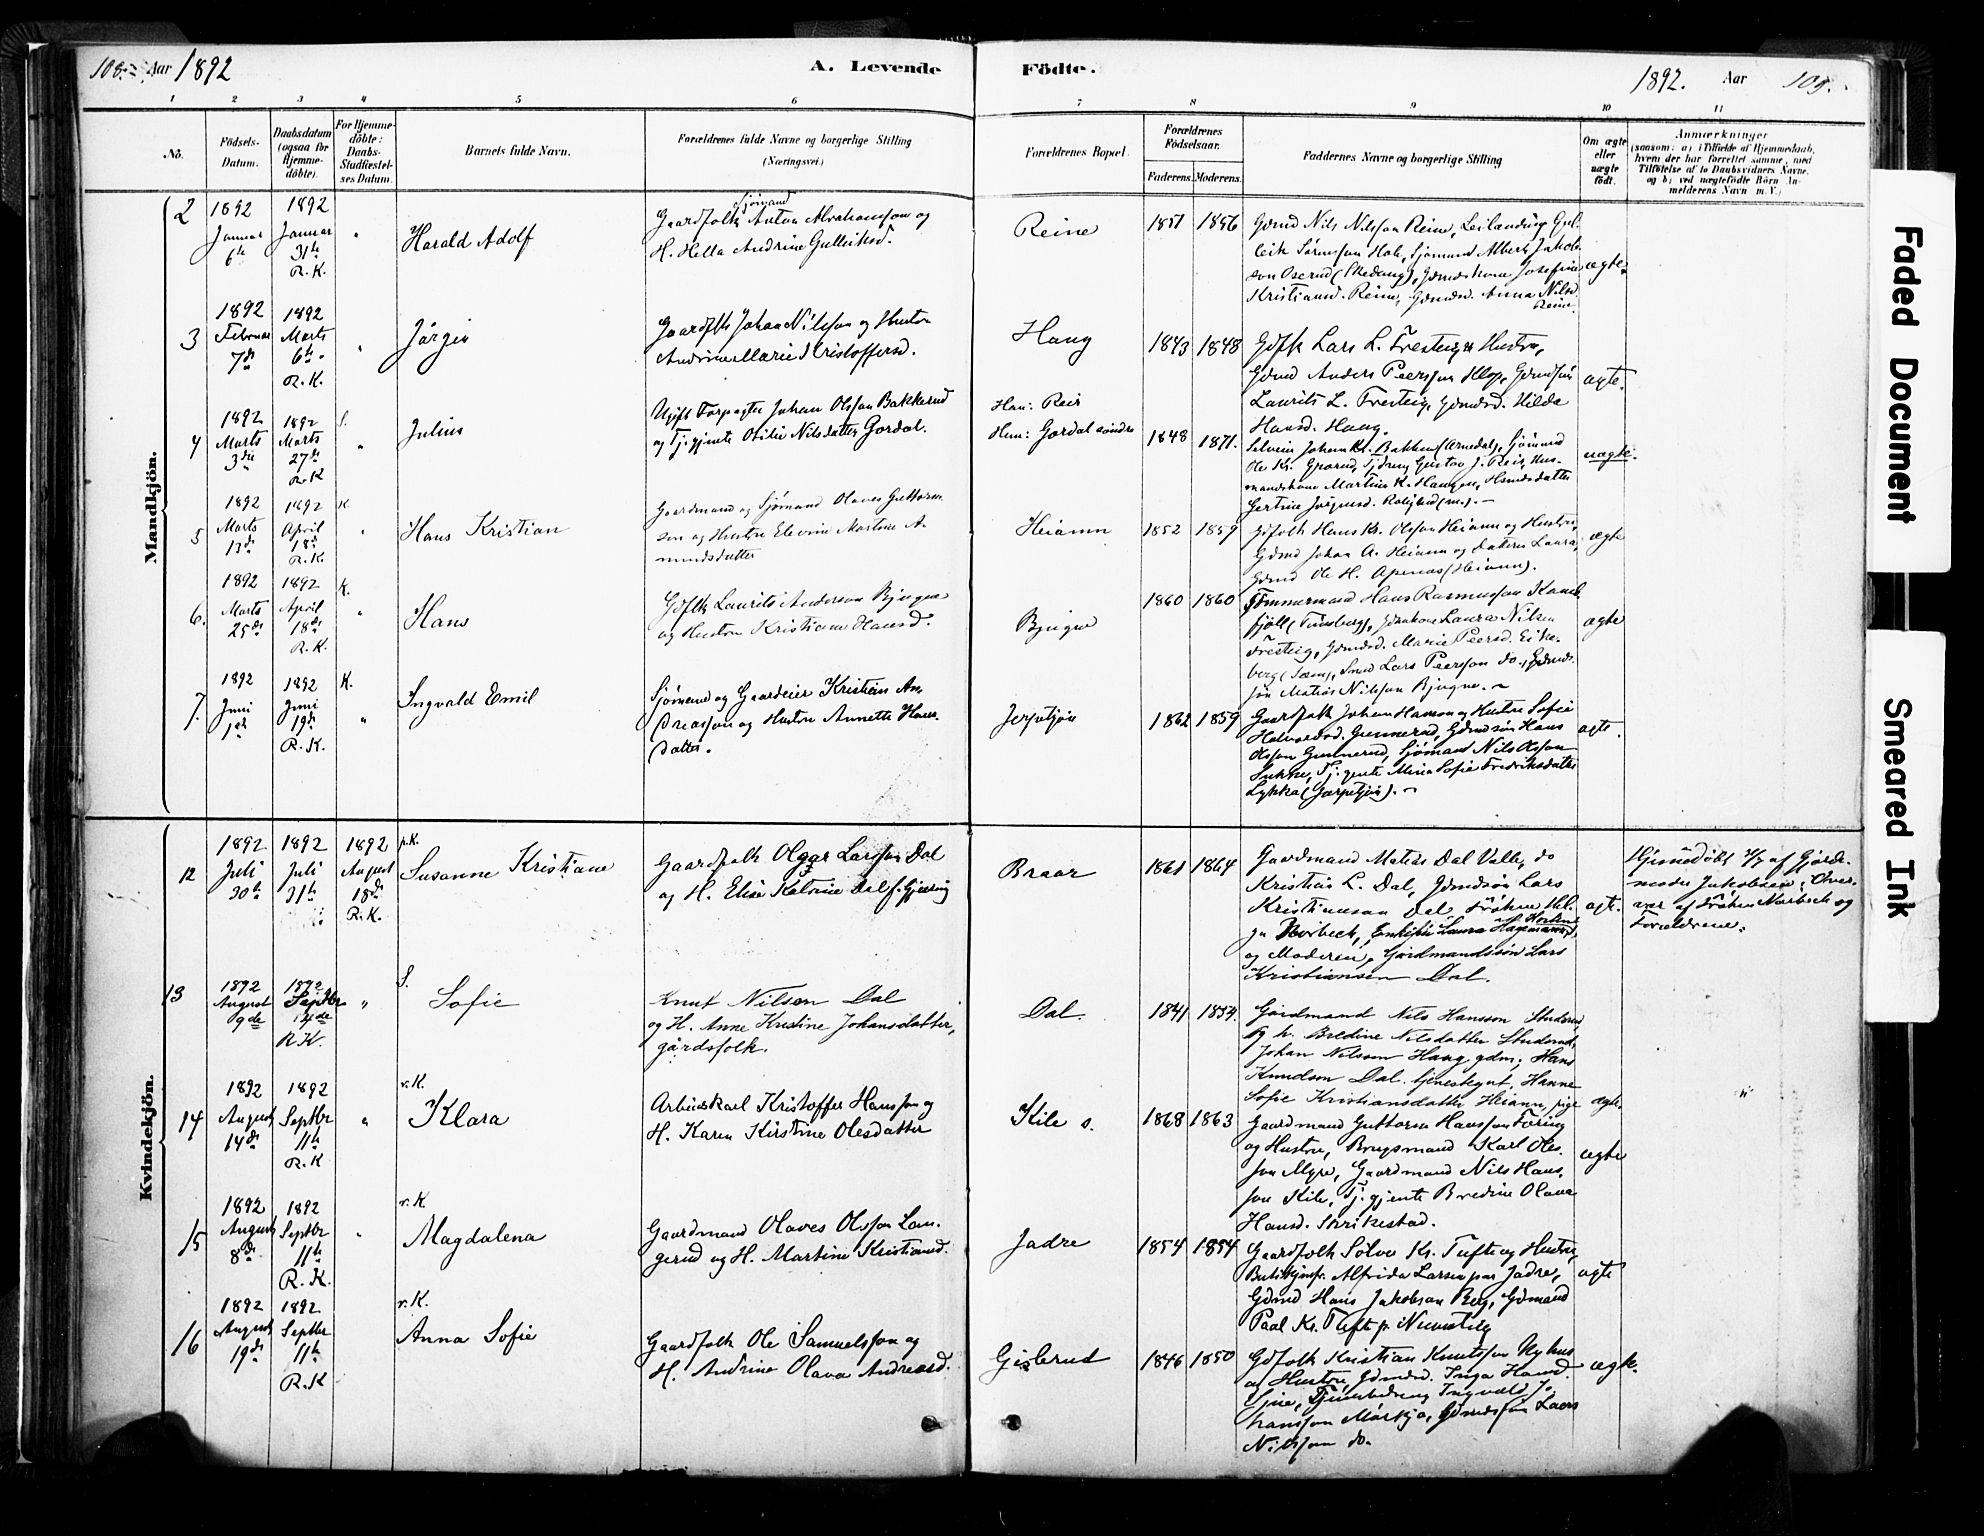 108. Aar 1892 A. Levende Födte. 1892. Aar 109.
1 2 3 4 5 6 7 8 9 10 11
No.
Födsels-Datum.
Daabsdatum (ogsaa for Hjemme-döbte).
For Hjemme-döbte: Daabs-Stadfæstel-ses Datum.
Barnets fulde Navn.
Forældrenes fulde Navne og borgerlige Stilling
(Næringsvei.)
Forældrenes Bopæl.
Forældrenes Födselsaar.
Faderens. Moderens.
Faddernes Navne og borgerlige Stilling
Om ægte eller uægte födt.
Anmærkninger
(saasom: a) i Tilfælde af Hjemmedaab,
hvem der har forrettet samme, med
Tilföielse af to Daabsvidners Navne.
og b) ved uægtefödte Börn An-
melderens Navn m. V.)
Mandkjön.
2
1892 Januar 6te
1892 Januar 31te R. K.
"
Harald Adolf
Sjømand
Gaardfolk Anton Abrahamson og
H. Hella Andrine Gulleiksd.
Reine
1851 1856
Gdmd Nils Nilsson Reine, Leilænding Gul-
leik Sørensson Hole, Sjømand Albert Jakob-
son Oserud (Skedang), Gdmdskone Josefine
Kristiansd. Reine, Gdmdsd. Anna Nilsd.
Reine.
ægte.
3
1892 Februar 7de
1892 Marts 6te R. K.
"
Jörgen
Gaardfolk Johan Nilsson og Hustru
Andrine Marie Kristoffersd.
Haug
1843 1848
Gdfk Lars L. Fresteig og Hustru,
Gdmd Anders Peersson Klop, Gdmdsøn
Laurits L. Fresteig, Gdmdsd. Hilda
Hansd. Haug.
ægte.
4
1892 Marts 3die
1892 Marts 27de R. K
S.
"
Julius
Ugift Forpagter Johan Olsson Bakkerud
og Tj.gjente Otilie Nilsdatter Gordal.
Han: Reir
Hun: Gordal søndre
1848 1871.
Selveier Johan Kr. Bakken (Arnedal), Sjømand
Ole Kr. Gparud, Tjdreng Gustav J. Reir, Hus-
mandskone Martine K. Haugen, Hsmdsdatter
Gertine Jørgensd. Rolighed (m.). –
uægte.
5
1892 Marts 13de
1892 April 18de R. K.
K
"
Hans Kristian
Gaardmand og Sjømand Olaves Guttorm-
son og Hustru Elevine Martine A-
mundsdatter
Heiamn
1852 1859
Gdfolk Hans Kr. Olsson Heiamn og Hustru,
Gdmd Johan A. Heiamn og Datteren Laura,
Gdmd Ole H. Apenæs (Heiamn).
ægte
6.
1892 Marts 25de
1892 April 18de R. K.
K.
"
Hans
Gdflk Laurits Anderson Bjugne
og Hustru Kristiane Hansd.
Bjugne
1860 1860
Tømmermand Hans Rasmusson Kamel-
fjell (Tunsberg), Gdmkone Laura Nilsen
Fresteig, Gdmdsd. Marie Peersd. Eike-
berg (Sæm), Smed Lars Peerson do., Gdmds-
søn Matias Nilsson Bjugne. –
ægte
7.
1892 Juni 1ste
1892 Juni 19de R. K.
K.
"
Ingvald Emil
Sjømand og Gaardeier Kristian An-
dreasson og Hustru Annette Hans-
datter.
Jerpetjøn
1862 1859
Gaardfolk Johan Hanson og Hustru Sofie
Halvorsd. Gunnerud, Gdmdsøn Hans
Olsson Gunnerud, Sjømand Nils Olsson
Lukke, Tj.gjente Mina Sofie Fredriksdatter
Lykka (Jærpetjøn). –
ægte.
Kvindekjön.
12
1892 Juli 30te
1892 Juli 31te
1892 August 18de R. K.
p.K.
Susanne Kristiane
Gaardfolk Olgar Larsson Dal
og H. Elise Katrine Dal f. Gjæring
Braar
1861 1864
Gaardmand Matias Dal Valle, do
Kristian L. Dal, Gdmdsøn Lars
Kristiansen Dal, Frøken Hel-
ga Norbeck, Enkefru Laura Hagemann
og Moderen, Gårdmandssøn Lars
Kristiansen Dal.
ægte.
Hjemmedøbt 31/7 af Gjorde-
moder Jakobsen; Over-
vær af Frøken Norbeck og
Forældrene.
13
1892 August 9de
1892 Septbr 4de R. K.
"
S.
Sofie
Knut Nilsen Dal
og H. Anne Kirstine Johansdatter,
gårdsfolk.
Dal.
1841 1854.
Gårdmand Nils Hansson Studerud
og h. Boldine Nilsdatter Studerud,
Johan Nilsson Haug, gdm; Hans
Knudson Dal, tjenestegut, Hanne
Sofie Kristiansdatter Heiamn, pige
ægte.
14
1892 August 14de
1892 Septbr 11te R. K
"
r. K.
Klara
Arbeidskarl Kristoffer Hansson og
H. Karen Kirstine Olesdatter
Kile s.
1868 1863
Gaardmand Guttorm Hansson Føring
og Hustru, Brugsmand Karl Ols-
son Myre, Gaardmand Nils Hans-
son Kile, Tj.gjente Bredine Olava
Hansd. Skrikestad.
ægte
15
1892 August 8de
1892 Septbr 11te R. K.
"
r. K
Magdalena
Gaardmand Olaves Olsson Lan-
gerud og H. Martine Kristiansd.
Jadre
1854 1854
Gaardfolk Sølve Kr. Tufte og Hustru,
Butikjomfr. Alfrida Larsen paa Jadre,
Gdmd Hans Jakobson Berg, Gdmand
Paal Kr. Tufte p. Numsteig
ægte
16
1892 August 19de
1892 Septbr 11te R. K
r. K.
Anna Sofie
Gaardfolk Ole Samuelsson og
H. Andrine Olava Andreasd.
Gislerud
1846 1850
Gdfolk Kristian Knutsson Nyhus
og Hustru, Gdmdsd. Inga Hansd.
Sjue, Tjenestedreng Ingvald Jo-
hansson Mørkja, Gdmdssøn Lars
Nilsson do.
ægte.
Faded Document
Smeared Ink